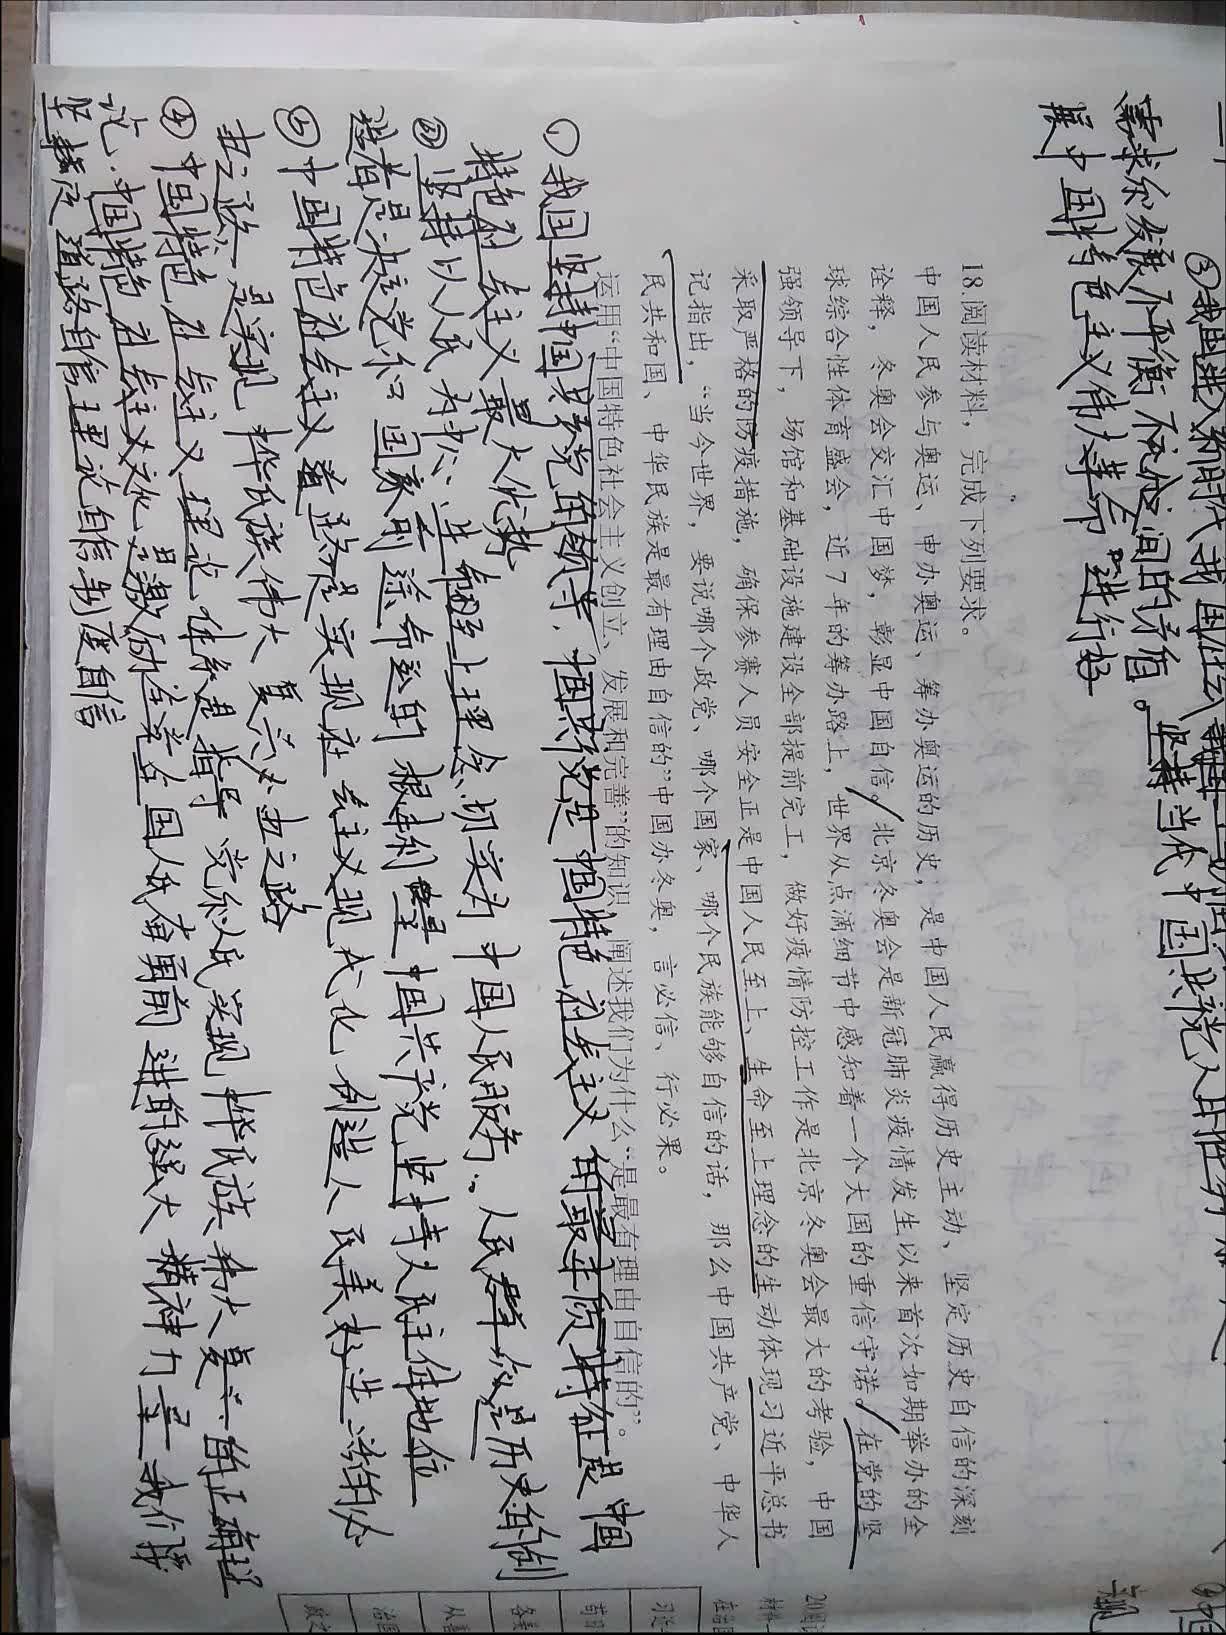 ③我国进入新时代我国社会
需求和发展不平衡不充分之间的矛盾。坚持当代中国
展中国特色主义伟大事为 进行好
18.阅读材料，完成下列要求。
中国人民参与奥运、申办奥运、筹办奥运的历史，是中国人民赢得历史主动、坚定历史自信的深刻
诠释，冬奥会交汇中国梦，彰显中国自信。北京冬奥会是新冠肺炎疫情发生以来首次如期举办的全
球综合性体育盛会，近7年的筹办路上，世界从点滴细节中感知着一个大国的重信守诺。在党的坚
强领导下，场馆和基础设施建设全部提前完工，做好疫情防控工作是北京冬奥会最大的考验，中国
采取严格的防疫措施，确保参赛人员安全正是中国人民至上、生命至上理念的生动体现习近平总书
记指出，“当今世界，要说哪个政党、哪个国家、哪个民族能够自信的话，那么中国共产党、中华人
民共和国、中华民族是最有理由自信的”中国办冬奥，言必信、行必果。
运用“中国特色社会主义创立、发展和完善”的知识，阐述我们为什么“是最有理由自信的”。
①我国坚持中国共产党的领导，中国共产党是中国特色社会主义的最本质特征是中国
特色社会主义最大优势
②坚持以人民为中心、生命至上理念，切实为中国人民服务。人民群众是历史的创
造者是决定党和国家前途命运的根本力量 中国共产党坚持人民主体地位
③中国特色社会主义道路是实现社会主义现代化，创造人民美好生活的必
由之路，是实现中华民族伟大复兴必由之路
④中国特色社会主义理论体系是指导党和人民实现中华民族伟大复兴的正确理
论．中国特色社会主义文化是激励全党全国人民奋勇前进的强大精神力量 我们要
坚持道路自信理论自信制度自信
习近
苟日
各美
从善
治
政之
20.阅读
材料一
在前